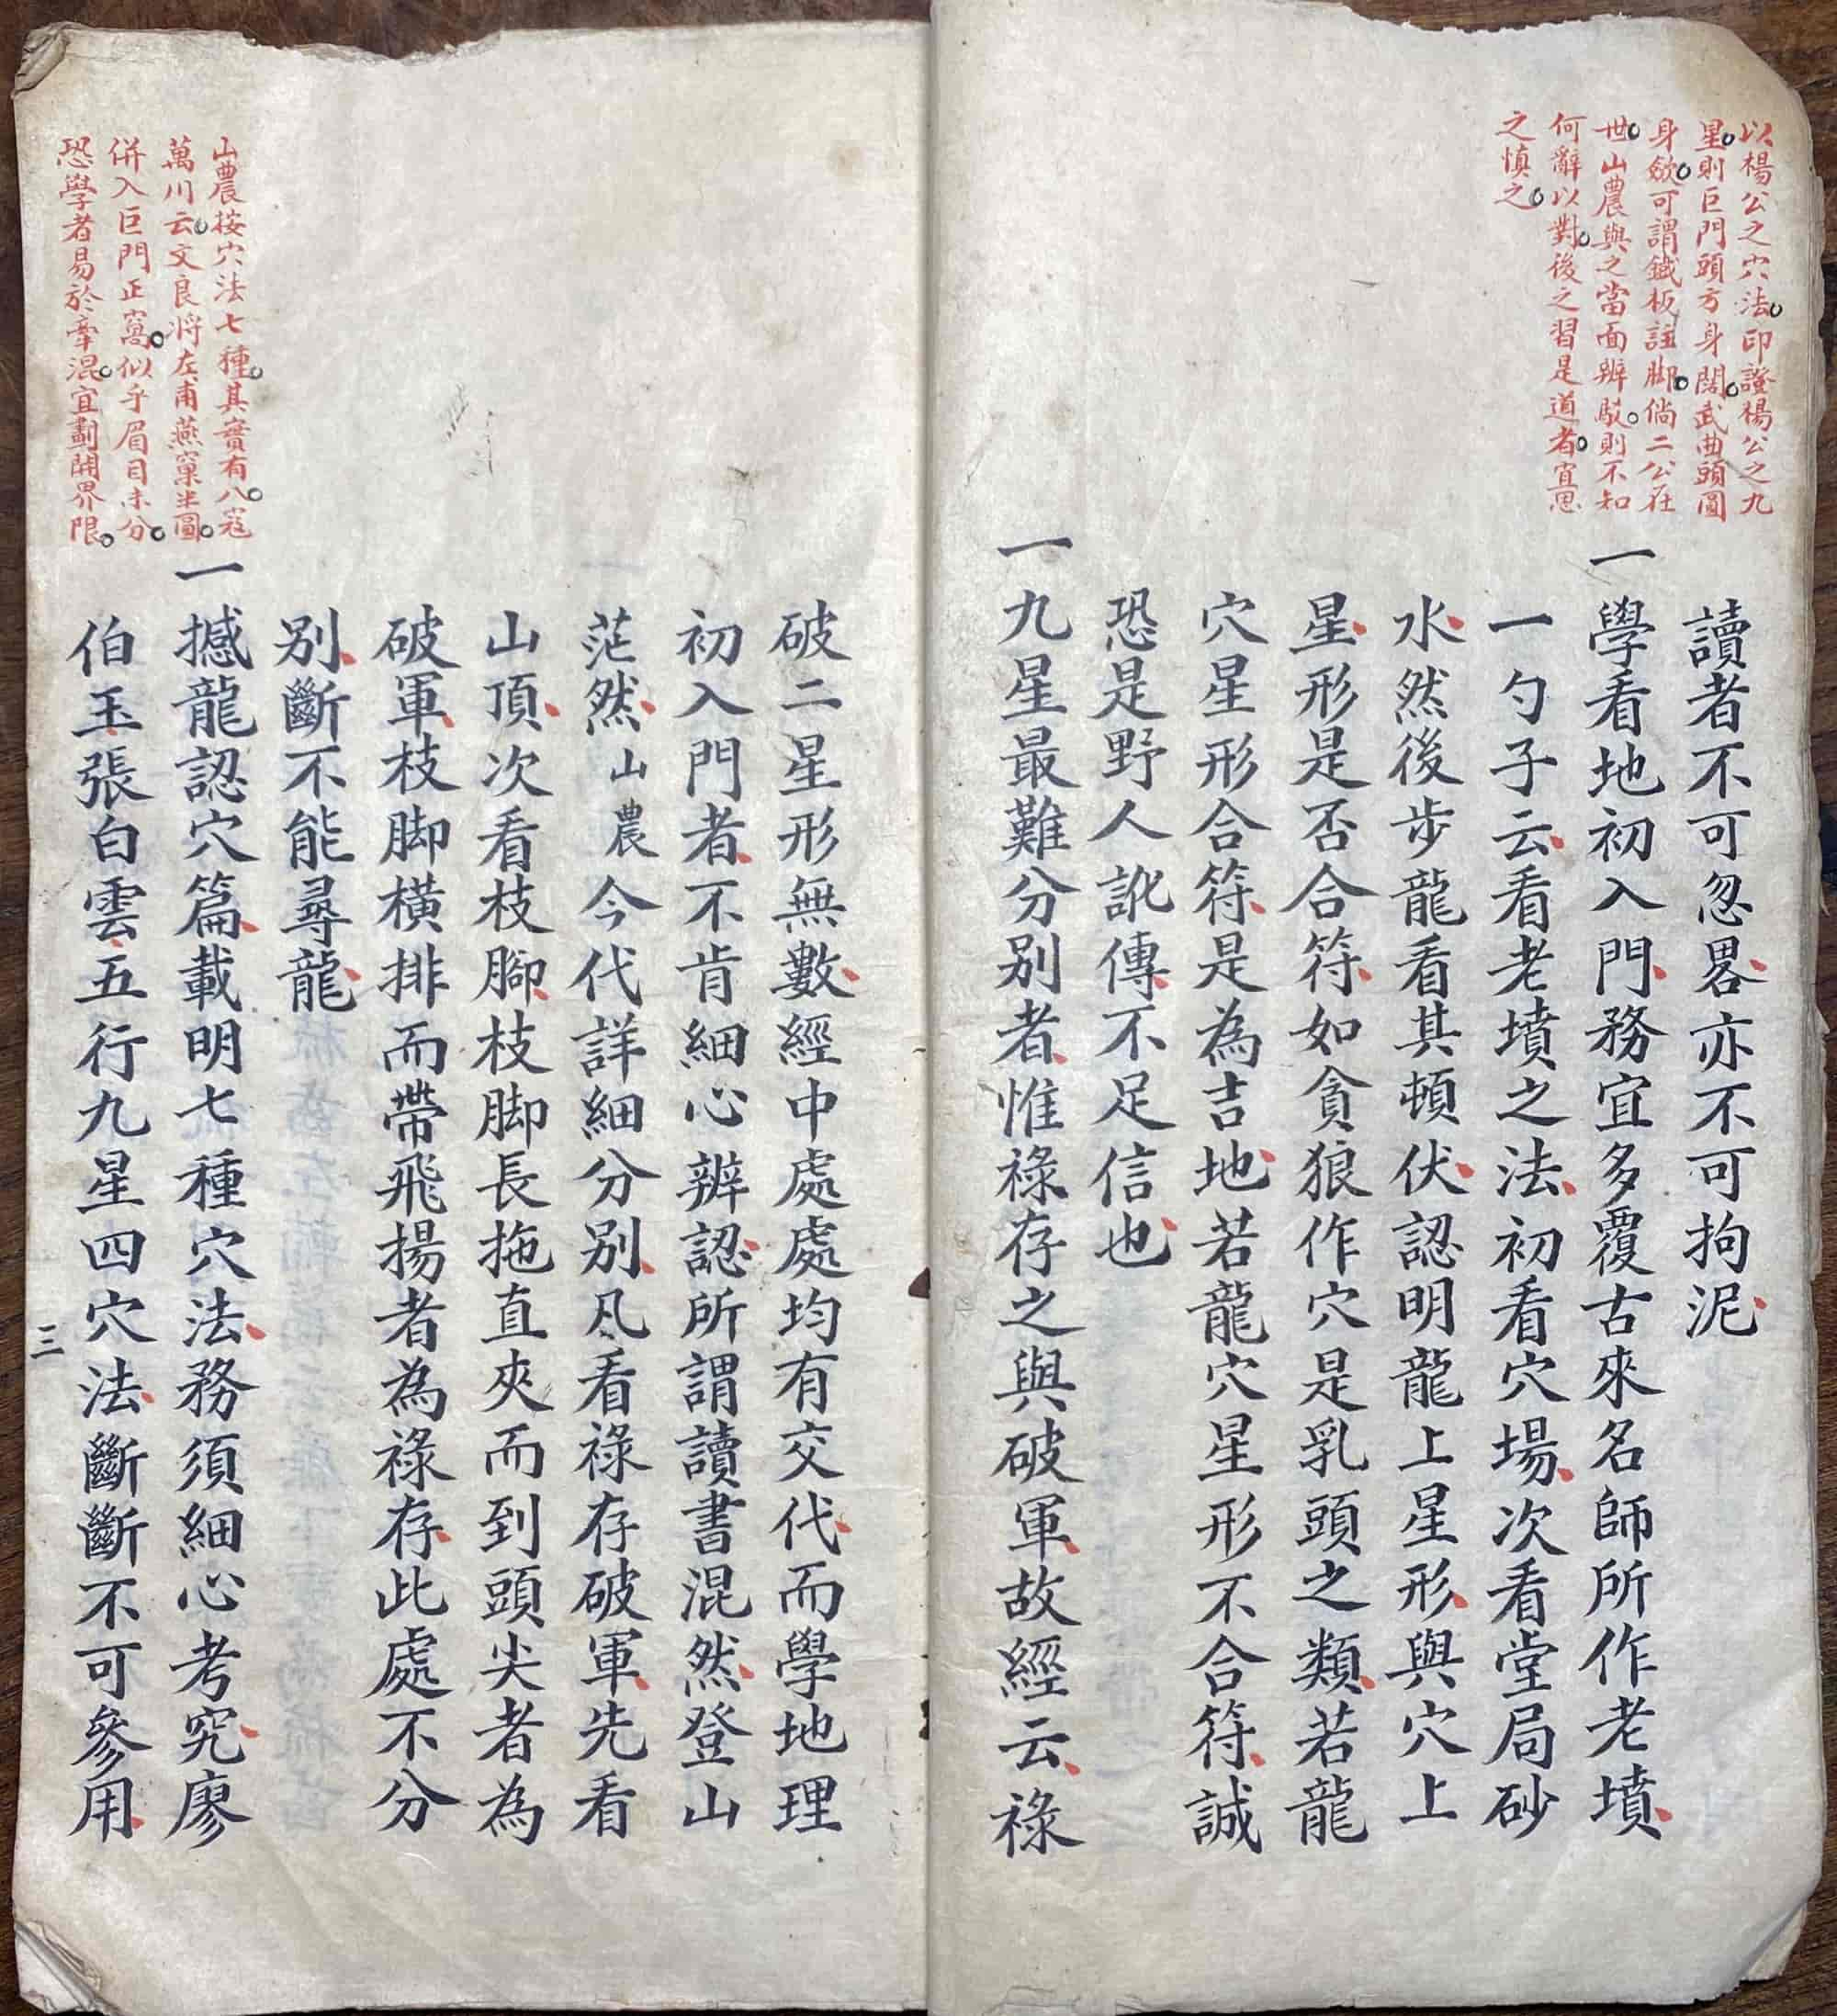 以楊公之穴法印證楊公之九
星則巨門頭方身闊武曲頭圓
身斂可謂鐵板註脚倘二公在
世山農與之當面辨駁則不知
何辭以對後之習是道者宜思
之慎之
讀者不可忽畧亦不可拘泥
一學看地初入門務宜多覆古來名師所作老墳
一勺子云看老墳之法初看穴場次看堂局砂
水然後步龍看其頓伏認明龍上星形與穴上
星形是否合符如貪狼作穴是乳頭之類若龍
穴星形合符是為吉地若龍穴星形不合符誠
恐是野人訛傳不足信也
一九星最難分別者惟祿存之與破軍故經云祿
破二星形無數經中處處均有交代而學地理
初入門者不肯細心辨認所謂讀書混然登山
茫然山農今代詳細分別凡看祿存破軍先看
山頂次看枝腳枝脚長拖直夾而到頭尖者為
破軍枝脚橫排而帶飛揚者為祿存此處不分
別斷不能尋龍
山農按穴法七種其實有八寇
萬川云文良將左甫燕窠半圓
併入巨門正窩似乎眉目未分
恐學者易於牽混宜劃開界限
一撼龍認穴篇載明七種穴法務須細心考究廖
伯玉張白雲五行九星四穴法斷斷不可參用
三